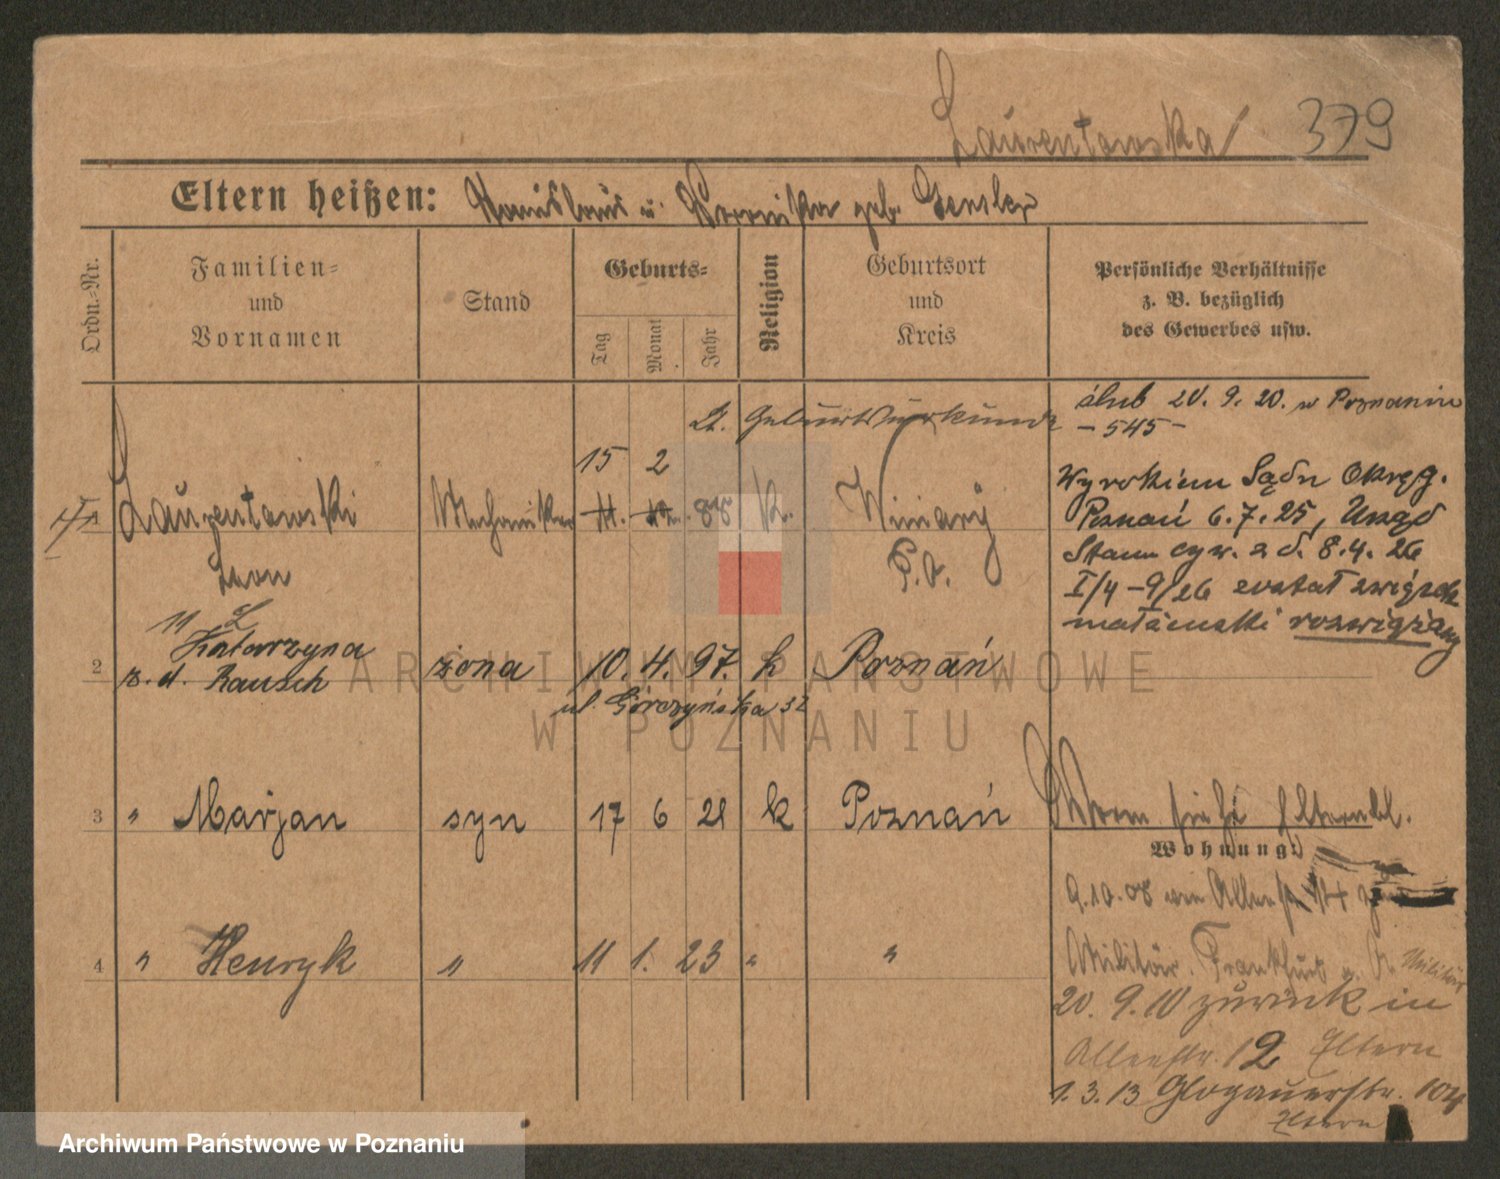 Laurentowska 379
Eltern heißen: Stanislaus u. Veronika geb. Gensler
Ordn.-Nr.
Familien-
und
Vornamen
Stand
Geburts-
Tag
Monat
Jahr
Religion
Geburtsort
und
Kreis
Persönliche Verhältnisse
z. B. bezüglich
des Gewerbes usw.
lt. Geburtsurkunde
ślub 20. 9. 20. w Poznaniu
- 545 -
15 2
Laurentowski Mechaniker 11. 88 k. Winiary
Leon P. O.
Wyrokiem Sądu Okręg.
Poznań 6.7.25, Urząd
Stanu cyw. z d. 8.4.26
I/4 - 9/26 został związek
małżeński rozwiązany
11 L
2 Katarzyna żona 10. 4. 97. k Poznań
z. d. Rausch
ul. Górczyńska 32
3 " Marjan syn 17 6 21 k Poznań
siehe Elternbl.
Wohnung:
9.10.08
4 " Henryk " 11 1. 23 " "
Militär. Frankfurt a. O. Militär
20. 9. 10 zurück in
Allenstr. 12 Eltern
1. 3. 13 Glogauerstr. 104
Eltern
ARCHIWUM PAŃSTWOWE
W POZNANIU
Archiwum Państwowe w Poznaniu